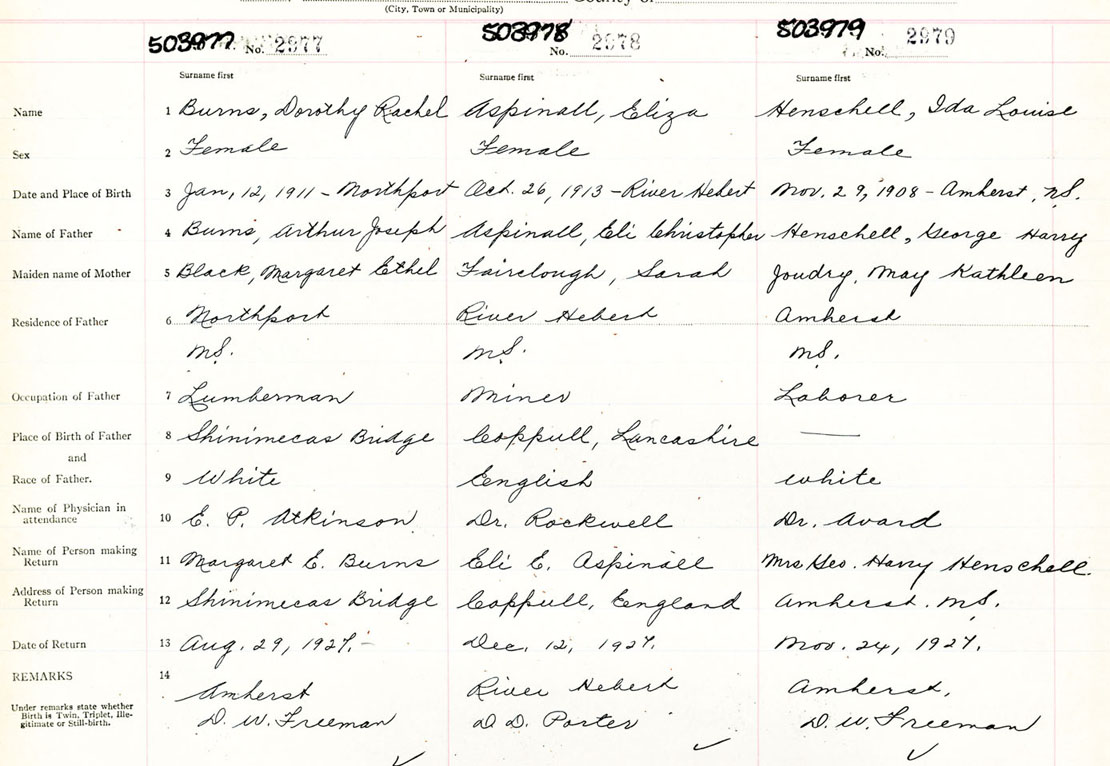 (City, Town or Municipality) County of
503977 No. 2977 503978 No. 2978 503979 No. 2979
Surname first Surname first Surname first
Name 1 Burns, Dorothy Rachel Aspinall, Eliza Henschell, Ida Louise
Sex 2 Female Female Female
Date and Place of Birth 3 Jan, 12, 1911 - Northport Oct. 26, 1913 - River Hebert Nov. 29, 1908 - Amherst, N.S.
Name of Father 4 Burns, Arthur Joseph Aspinall, Eli Christopher Henschell, George Harry
Maiden name of Mother 5 Black, Margaret Ethel Fairclough, Sarah Joudry, May Kathleen
Residence of Father 6 Northport River Hebert Amherst
N.S. N.S. N.S.
Occupation of Father 7 Lumberman Miner Laborer
Place of Birth of Father 8 Shinimecas Bridge Coppull, Lancashire —
and
Race of Father. 9 White English White
Name of Physician in attendance 10 E. P. Atkinson Dr. Rockwell Dr. Avard
Name of Person making Return 11 Margaret E. Burns Eli E. Aspinall Mrs Geo. Harry Henschell.
Address of Person making Return 12 Shinimecas Bridge Coppull, England Amherst. N.S.
Date of Return 13 Aug. 29, 1927. - Dec, 12, 1927. Nov. 24, 1927.
REMARKS 14 Amherst River Hebert Amherst,
Under remarks state whether Birth is Twin, Triplet, Illegitimate or Still-birth. D. W. Freeman D. D. Porter D. W. Freeman